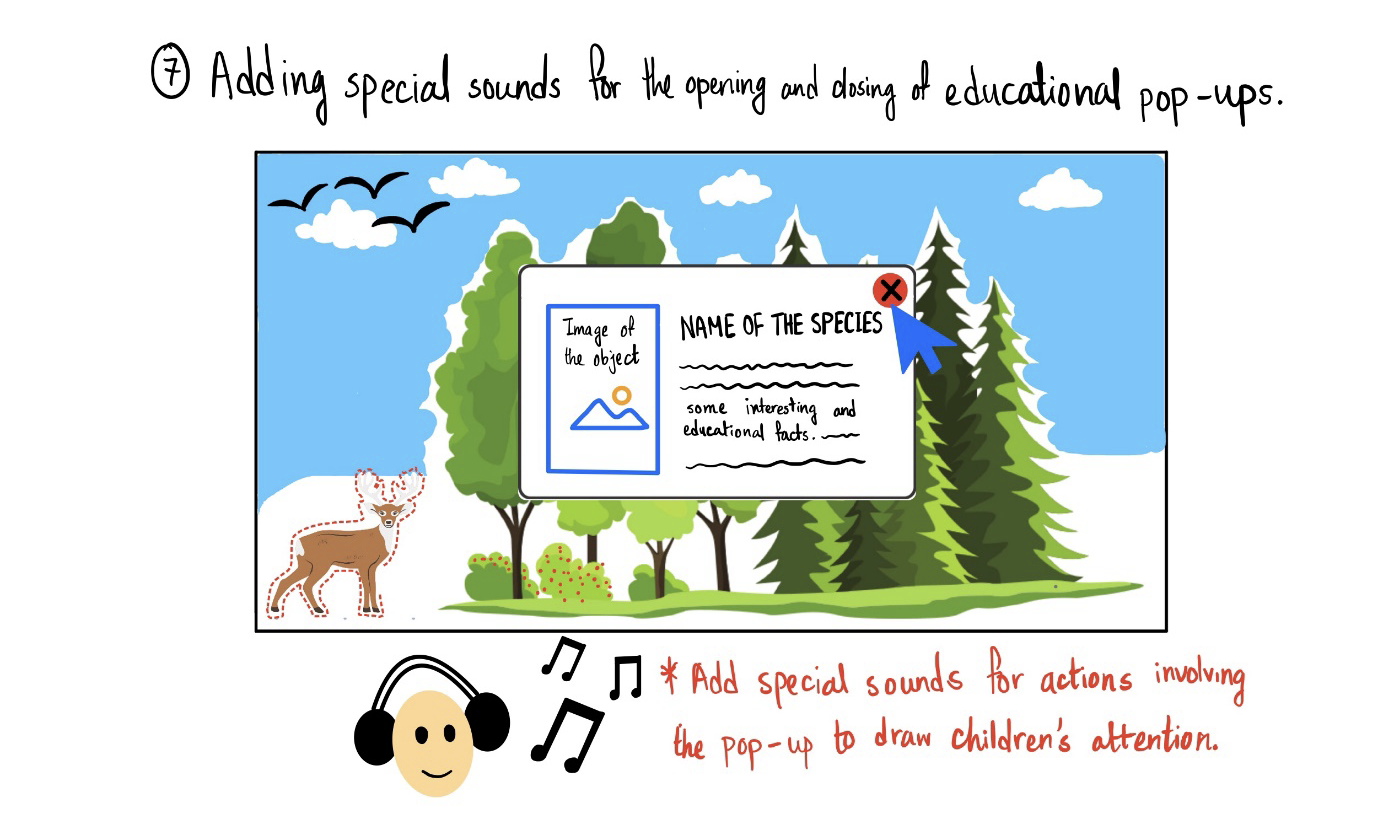 7 Adding special sounds for the opening and closing of educational pop-ups.
Image of
the object
NAME OF THE SPECIES
some interesting and
educational facts.
* Add special sounds for actions involving
the pop-up to draw children's attention.